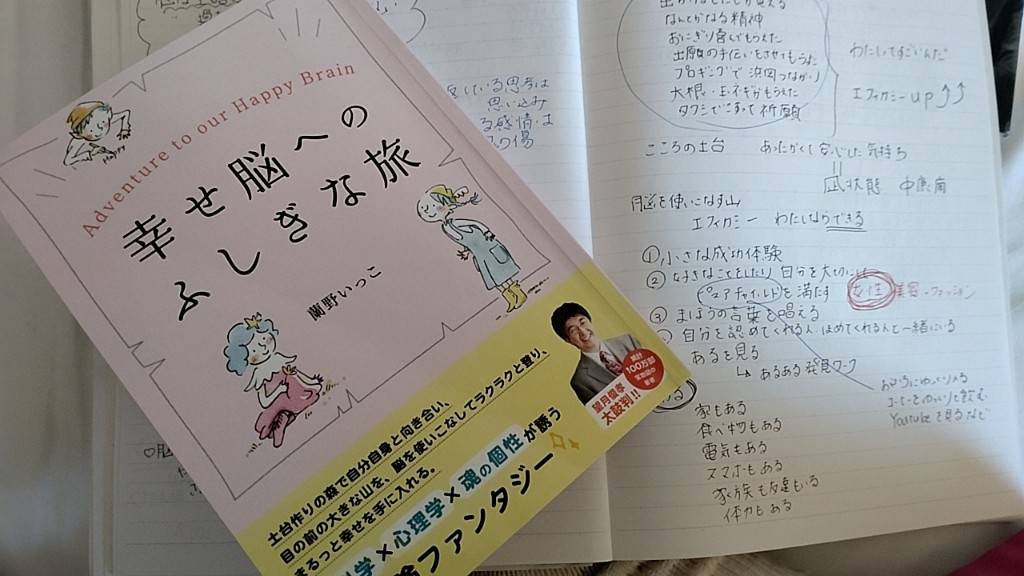 Adventure to our Happy Brain
幸せ脳への
ふしぎな旅
蘭野いっこ
Happy
土台作りの森で自分自身と向き合い、
目の前の大きな山を、脳を使いこなしてラクラクと登り、
まるっと幸せを手に入れる、
学×心理学×魂の個性が誘う
ファンタジー
累計
100万部
著者
大絶賛!!
ている思考は
思い込み
る感情は
の傷
なんとかなる精神
おにぎり喜んでもらえた
プロギングで浜田つながり
大根・玉ネギがもらえた
タワシでこすって祈願
わたしってすごいんだ
エフィカシーup
こころの土台 あったかくて安心した気持ち
凪状態 中庸
脳を使いこなす山
エフィカシー わたしならできる
①小さな成功体験
②なすきなことをしたり 自分を大切に
ピュアチャイルドを満たす 女性 美容・ファッション
③まほうの言葉を唱える
自分を認めてくれる人、ほめてくれる人と一緒にいる
あるを見る
あるある発見ワーク
コーヒーをゆっくり飲む
Youtubeを見るなど
家もある
食べ物もある
電気もある
スマホもある
家族も友達もいる
体力もある